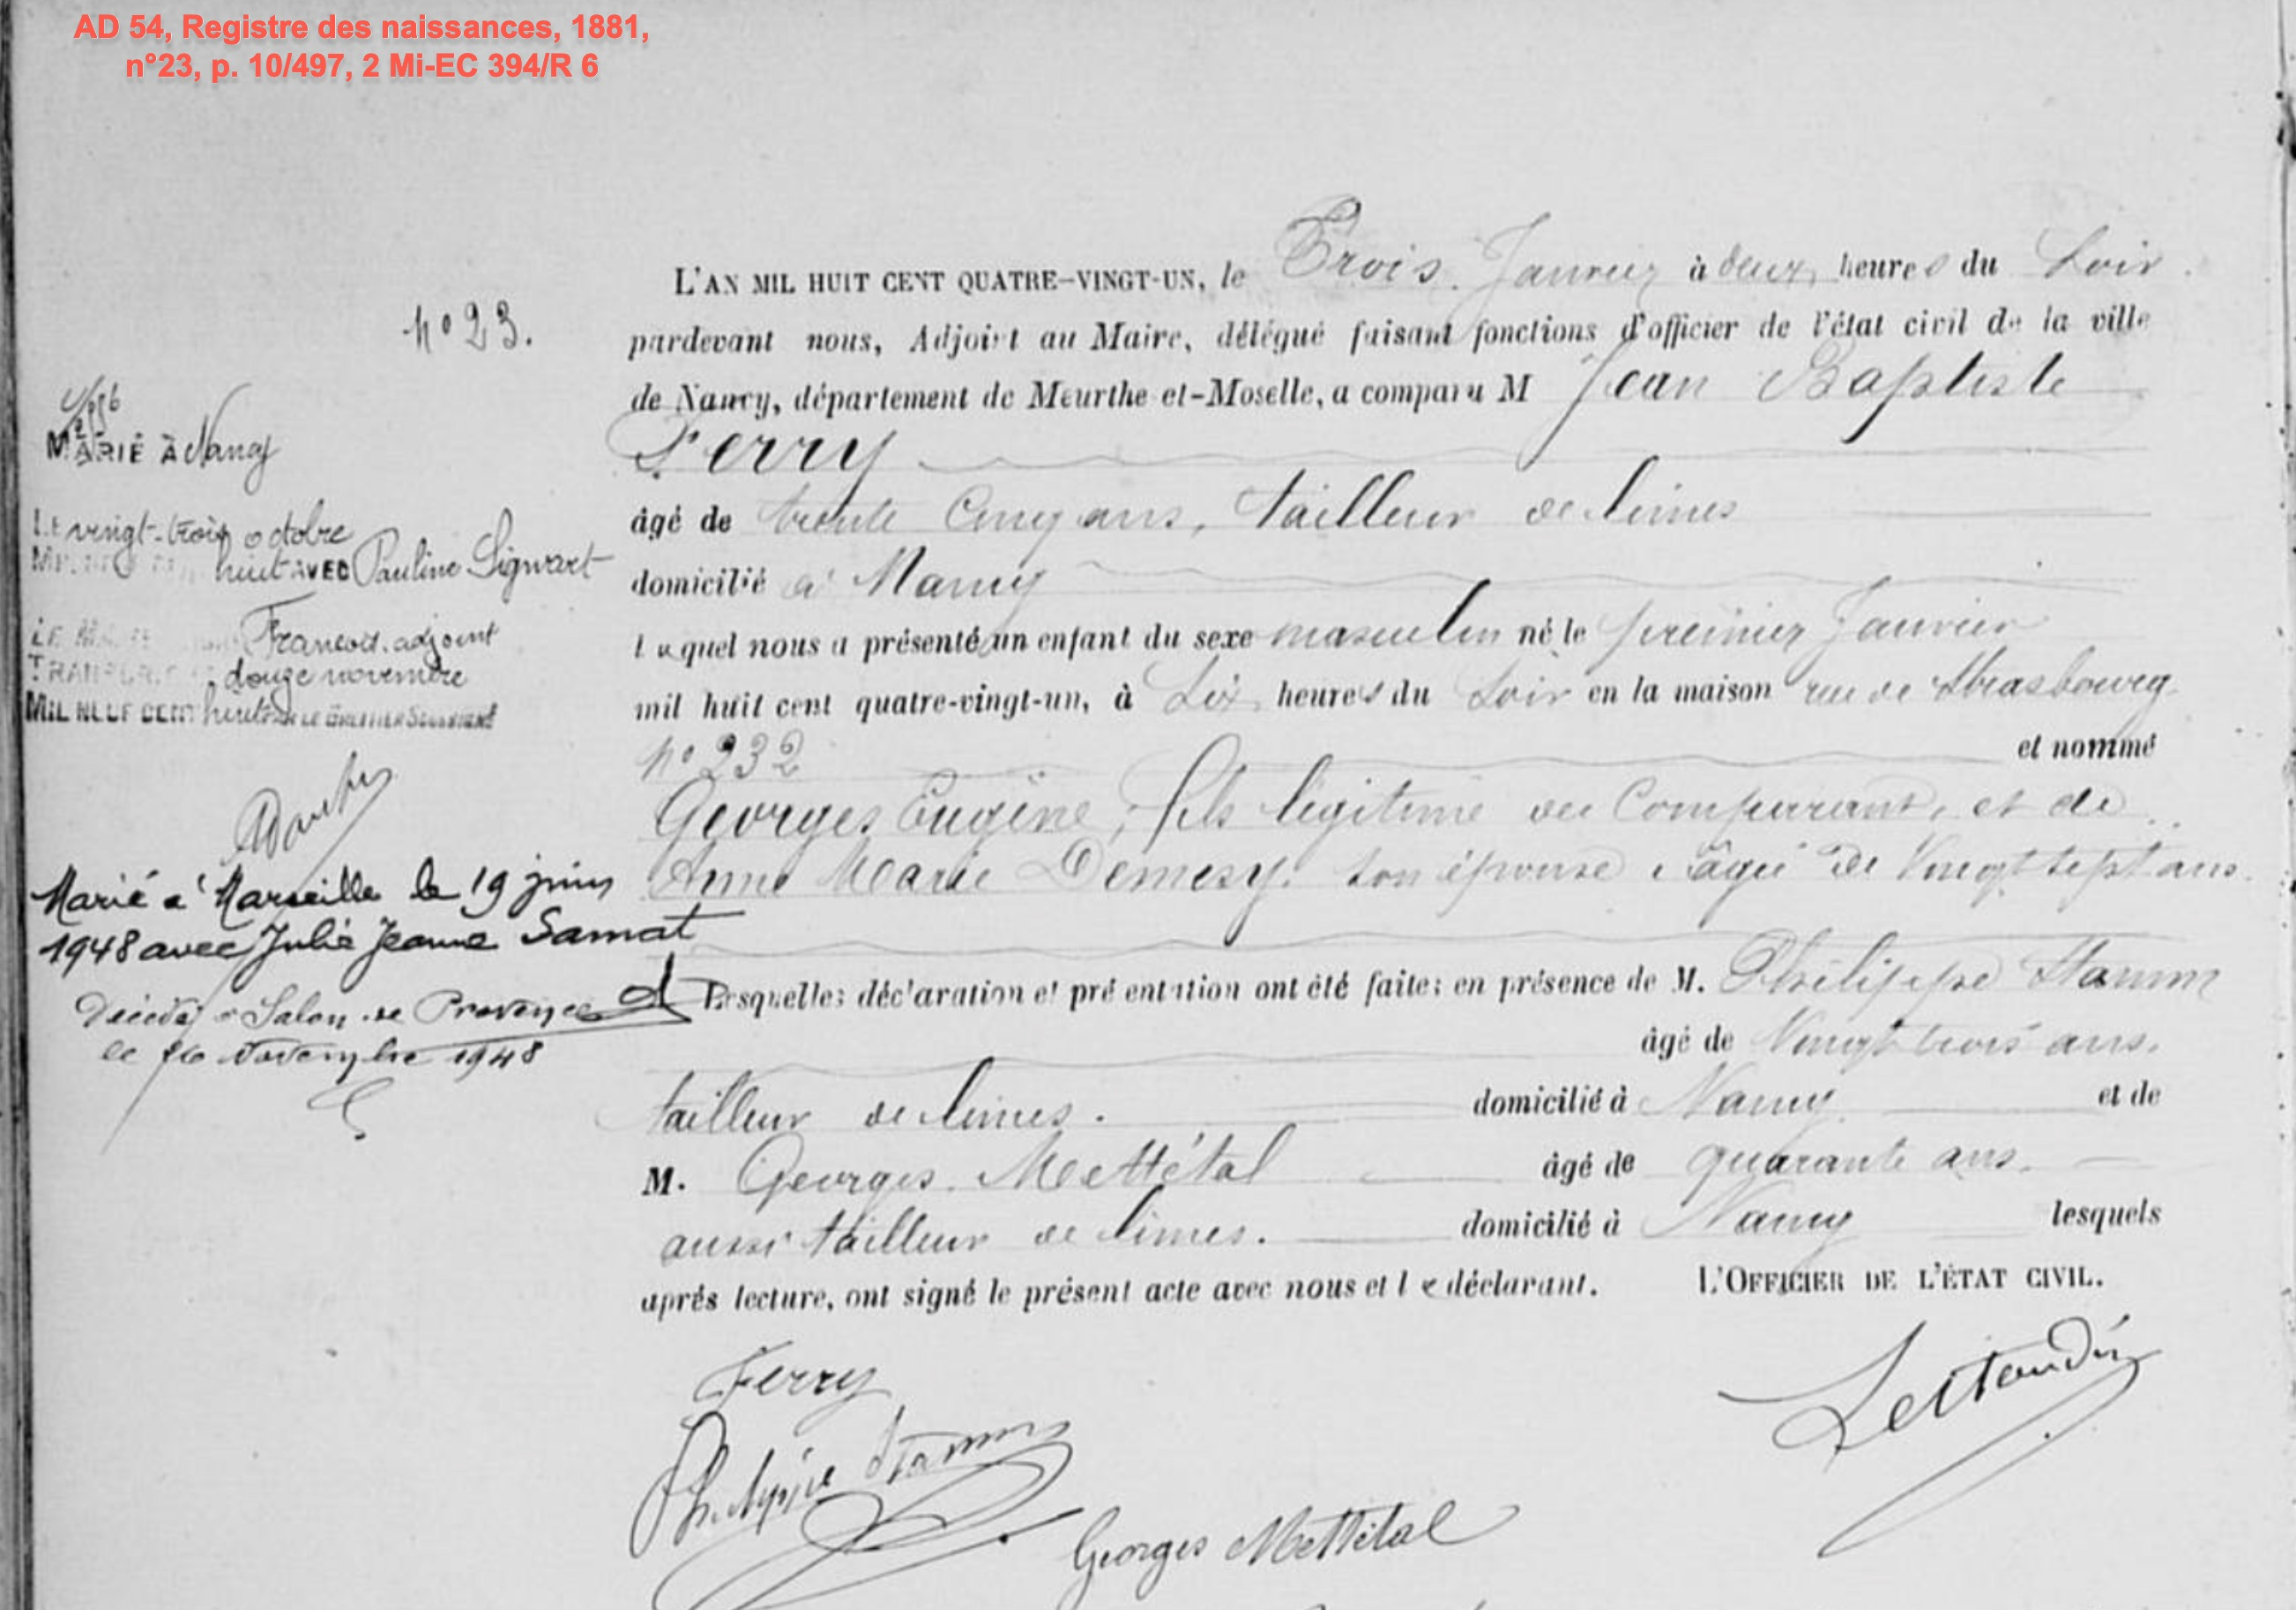 AD 54, Registre des naissances, 1881,
n°23, p. 10/497, 2 Mi-EC 394/R 6
n° 23.
MARIÉ À Nancy
LE vingt-trois octobre
huit AVEC Pauline Sigwart
François. adjoint
douze novembre
MIL NEUF CENT huit
Marié à Marseille le 19 juin
1948 avec Julie Jeanne Samat
Décédé à Salon de Provence
le 16 Novembre 1948
L'AN MIL HUIT CENT QUATRE-VINGT-UN, le Trois Janvier à deux heures du Soir.
pardevant nous, Adjoint au Maire, délégué faisant fonctions d'officier de l'état civil de la ville
de Nancy, département de Meurthe-et-Moselle, a comparu M Jean Baptiste
Ferry
âgé de trente cinq ans, tailleur de limes
domicilié à Nancy
lequel nous a présenté un enfant du sexe masculin né le premier Janvier
mil huit cent quatre-vingt-un, à Six heures du Soir en la maison rue de Strasbourg
n° 232 et nommé
Georges Eugène, fils légitime du Comparant, et de
Anne Marie Demesy. son épouse, âgée de Vingt sept ans.
Lesquelles déclaration et présentation ont été faites en présence de M. Philippe Stamm
âgé de Vingt trois ans.
tailleur de limes. domicilié à Nancy et de
M. Georges Mettétal âgé de quarante ans.
aussi tailleur de limes. domicilié à Nancy lesquels
après lecture, ont signé le présent acte avec nous et le déclarant. L'OFFICIER DE L'ÉTAT CIVIL.
Ferry
Philippe Stamm
Georges Mettétal